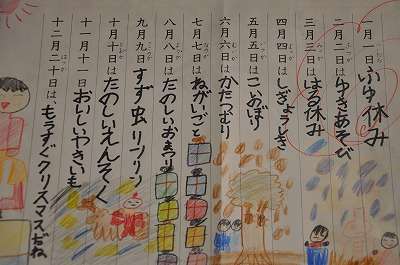 一月一日ふゆ休み
二月二日はゆきあそび
三月三日ははる休み
四月四日はしぎょうしき
五月五日はこいのぼり
六月六日はかたつむり
七月七日はねがいごと
八月八日はたのしいおまつり
九月九日すず虫リンリン
十月十日はたのしいえんそく
十一月十一日おいしいやきいも
十二月二十日は、もうすぐクリスマスだね